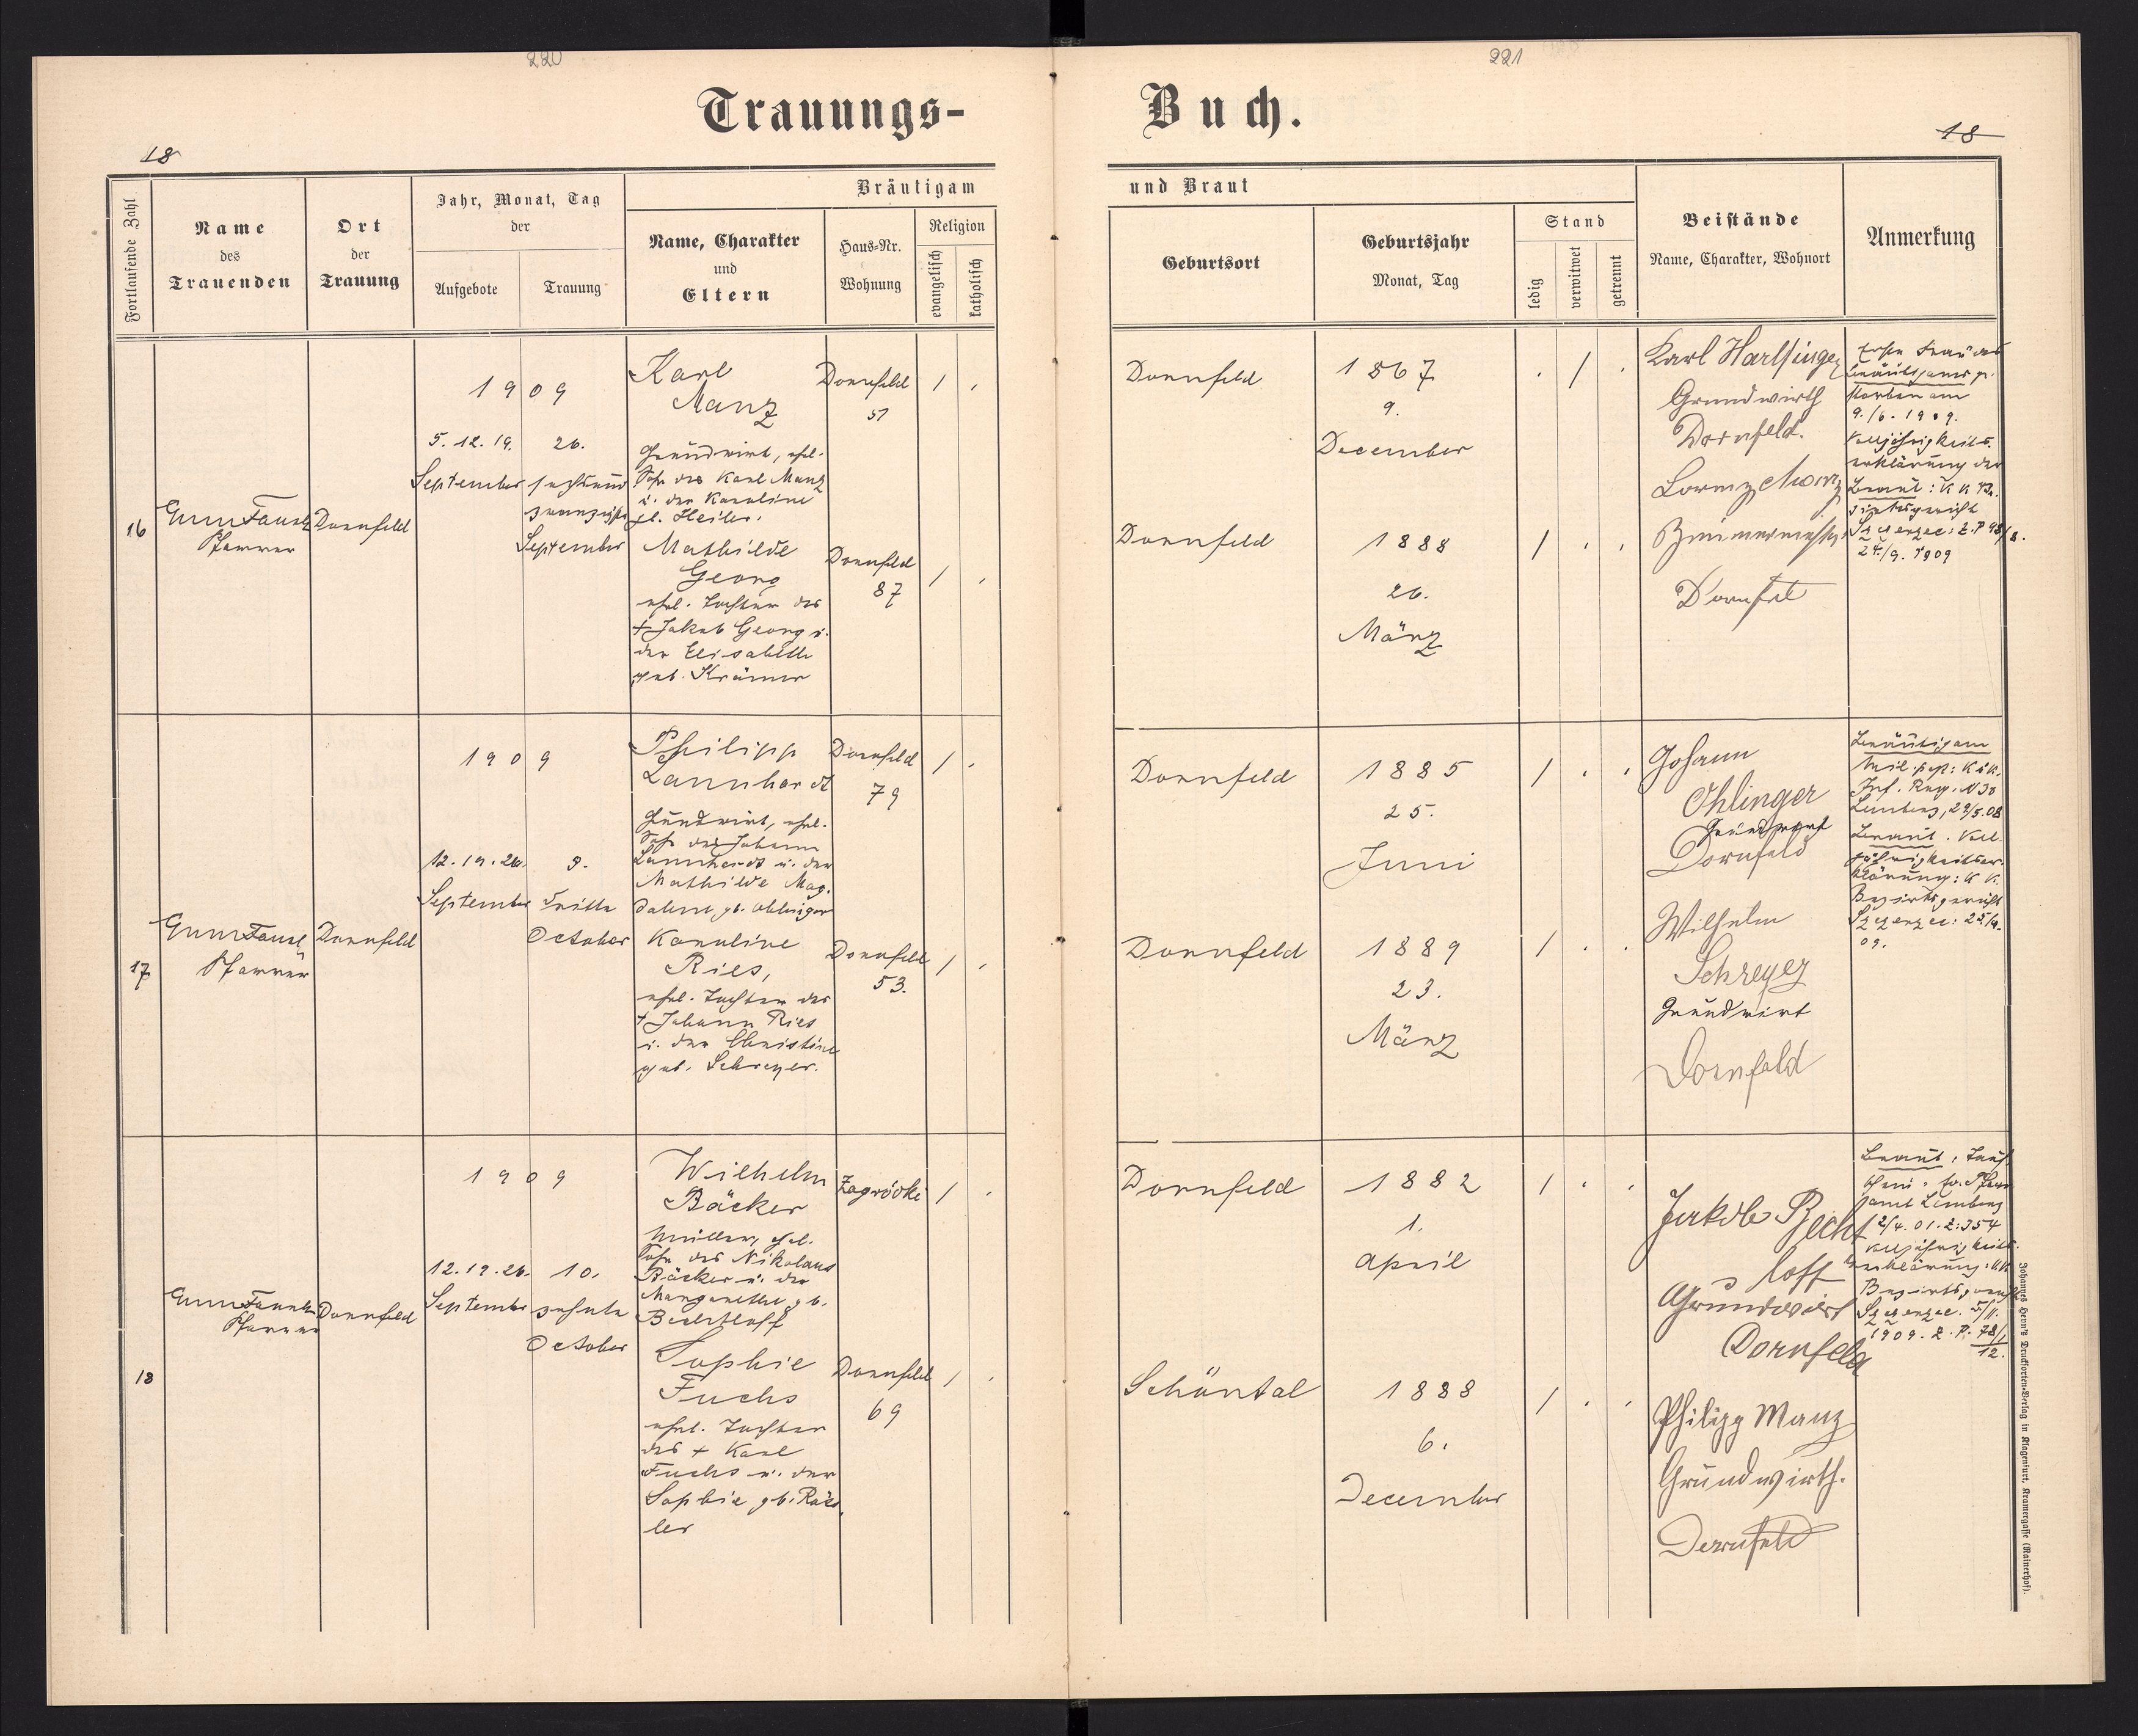 220
221
Trauungs-
Buch.
18
18
Fortlaufende Zahl
Name
des
Trauenden
Ort
der
Trauung
Jahr, Monat, Tag
der
Aufgebote
Trauung
Bräutigam
Name, Charakter
und
Eltern
Haus-Nr.
Wohnung
Religion
evangelisch
katholisch
und Braut
Geburtsort
Geburtsjahr
Monat, Tag
Stand
ledig
verwitwet
getrennt
Beistände
Name, Charakter, Wohnort
Anmerkung
16
Pfarrer
Dornfeld
1909
5. 12. 19.
September
26.
sechsund
zwanzigste
September
Karl
Manz
Grundwirt, ehel.
Sohn des Karl Manz
u. der Karoline
Mathilde
Georg
ehel. Tochter des
† Jakob Georg u.
der Elisabeth
geb. Krämer
Dornfeld
51
/ .
Dornfeld
87
/ .
Dornfeld
1867
9.
December
. / .
Dornfeld
1888
26.
März
/ . .
Karl Harlfinger
Grundwirth
Dornfeld.
Lorenz Manz
Dornfeld
Erste Frau des
Bräutigams ge-
storben am
9./6. 1909.
Volljährigkeits-
erklärung der
Braut: k k Be-
zirksgericht
Szczerzec: Z. P 48/8.
24./9. 1909
17
Pfarrer
Dornfeld
1909
12. 19. 26.
September
3.
dritte
October
Philipp
Lannhardt
Grundwirt, ehel.
Sohn des Johann
Lannhardt u. der
Mathilde Mag-
dalene, gb. Ohlinger
Karoline
Ries,
ehel. Tochter des
† Johann Ries
u. der Christine
geb. Schreyer.
Dornfeld
79
/ .
Dornfeld
53.
/ .
Dornfeld
1885
25.
Juni
/ . .
Dornfeld
1889
23.
März
/ . .
Johann
Ohlinger
Grundwirt
Dornfeld
Wilhelm
Schreyer
Grundwirt
Dornfeld
Bräutigam
k. u. k.
Inf. Reg. N 30
Lemberg, 29/5.08
Braut. Voll-
jährigkeitser-
klärung: k k.
Bezirksgericht
Szczerzec: 25/9.
09.
18
Pfarrer
Dornfeld
1909
12. 19. 26.
September
10.
zehnte
October
Wilhelm
Bäcker
Müller, ehel.
Sohn des Nikolaus
Bäcker u. der
Margarethe gb.
Bechtloff
Sophie
Fuchs
ehel. Tochter
des † Karl
Fuchs u. der
Sophie gb. Röss-
ler
Zagródki
/ .
Dornfeld
69
/ .
Dornfeld
1882
1.
April
/ . .
Schöntal
1888
6.
December
/ . .
Jakob Becht
loff
Grundwirt
Dornfeld
Philipp Manz
Grundwirth.
Dornfeld
Braut: Tauf-
schein: ev. Pfarr-
amt Lemberg
2/4. 01. Z: 354
Volljährigkeits-
erklärung: kk
Bezirksgericht
Szczerzec.
1909. Z. P. 78/1
12.
Johannes Heyn's Drucksorten-Verlag in Klagenfurt, Kramergasse (Rainerhof).